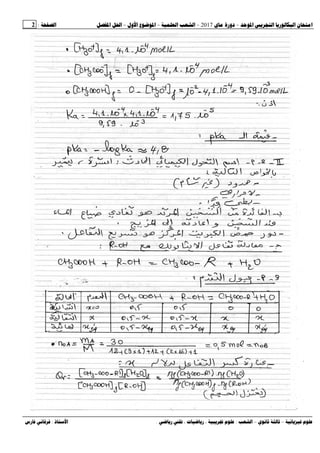 امتحان البكالوريا التجريبي الموحد - دورة ماي 2017 - الشعب العلمية - الموضوع الأول - الحل المفصل الصفحة 2
• [H₃O⁺]f = 4,1.10⁻⁴ mol/L
• [CH₃COO⁻]f = [H₃O⁺]f = 4,1.10⁻⁴ mol/L
• [CH₃COOH]f = C - [H₃O⁺]f = 10⁻² - 4,1.10⁻⁴ = 9,59.10⁻³ mol/L
Ka = 4,1.10⁻⁴ × 4,1.10⁻⁴ / 9,59.10⁻³ = 1,75.10⁻⁵
- قيمة الـ pKa :
pKa = - log Ka ≈ 4,8
اسم التحول الكيميائي الحادث: أسترة، يتميز
بالخواص التالية:
- لا حراري
ب- الفائدة من التسخين المرتد هو تفادي ضياع المادة
عند التسخين
- دور حمض الكبريت المركز هو تسريع التفاعل.
R-OH
CH₃COOH + R-OH = CH₃COO-R + H₂O
جدول التقدم:
الحالة التقدم CH₃COOH + R-OH = CH₃COO-R + H₂O
x=0 0,5 0,5 0 0
x 0,5-x 0,5-x x x
xf 0,5-xf 0,5-xf xf xf
• n₀A = mA / M = 30 / 12+(3×1)+12+(2×16)+1 = 0,5 mol = n₀B
- عبارة كسر التفاعل
Qr = [CH₃COO-R]f [H₂O]f / [CH₃COOH]f [R-OH]f = nf(CH₃COO-R).nf(H₂O) / nf(CH₃COOH).nf(R-OH)
علوم فيزيائية - ثالثة ثانوي - الشعب: علوم تجريبية - رياضيات - تقني رياضي الأستاذ: فرقاني فارس